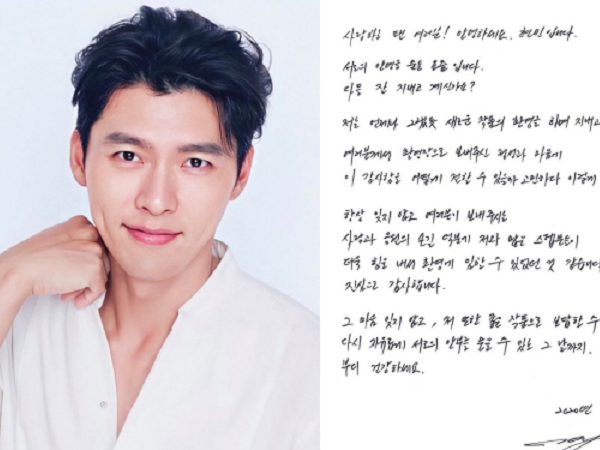 사랑하는 팬 여러분! 안녕하세요. 현빈 입니다.
서로의 안녕을 묻는 요즘 입니다.
다들 잘 지내고 계신가요?
저는 언제나 그랬듯 새로운 작품의 촬영을 하며 지내고
여러분께서 촬영장으로 보내주신 정성과 마음에
이 감사함을 어떻게 전할 수 있을까 고민하다 이렇게
항상 잊지 않고 여러분이 보내주시는
사랑과 응원의 모인 덕분에 저와 많은 스텝분들이
더욱 힘을 내서 촬영에 임할 수 있었던 것 같습니다
진심으로 감사합니다.
그 마음 잊지 않고, 저 또한 좋은 작품으로 보답할 수
다시 자유롭게 서로의 안부를 물을 수 있는 그 날까지.
부디 건강하세요.
2020년